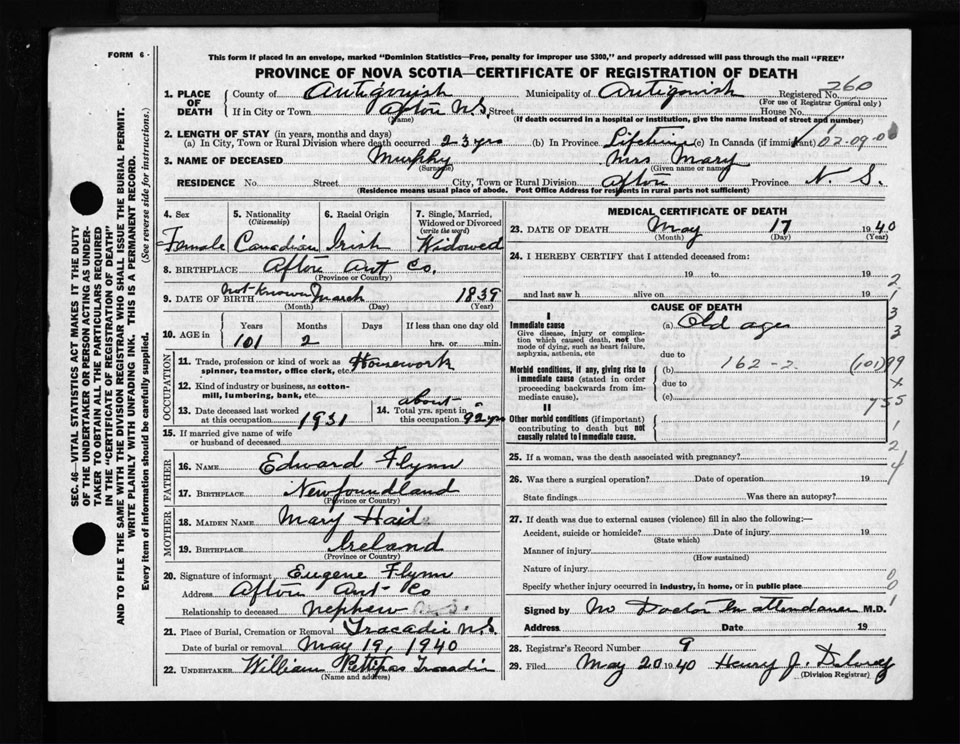 FORM 6
This form if placed in an envelope, marked "Dominion Statistics—Free, penalty for improper use $300," and properly addressed will pass through the mail "FREE"
PROVINCE OF NOVA SCOTIA—CERTIFICATE OF REGISTRATION OF DEATH
1. PLACE OF DEATH County of Antigonish Municipality of Antigonish Registered No. 260
(For use of Registrar General only)
If in City or Town Afton N.S. Street House No.
(Name) (If death occurred in a hospital or institution, give the name instead of street and number)
2. LENGTH OF STAY (in years, months and days)
(a) In City, Town or Rural Division where death occurred 23 yrs (b) In Province Lifetime (c) In Canada (if immigrant) 02-09-0
3. NAME OF DECEASED Murphy Mrs Mary
(Surname) (Given name or names)
RESIDENCE No. Street City, Town or Rural Division Afton Province N. S.
(Residence means usual place of abode. Post Office Address for residents in rural parts not sufficient)
4. Sex Female
5. Nationality (Citizenship) Canadian
6. Racial Origin Irish
7. Single, Married, Widowed or Divorced (write the word) Widowed
8. BIRTHPLACE Afton Ant Co.
(Province or Country)
9. DATE OF BIRTH Not Known March 1839
(Month) (Day) (Year)
10. AGE in Years Months Days If less than one day old
101 2 hrs. or min.
OCCUPATION
11. Trade, profession or kind of work as spinner, teamster, office clerk, etc. Housework
12. Kind of industry or business, as cotton-mill, lumbering, bank, etc.
13. Date deceased last worked at this occupation 1931
14. Total yrs. spent in this occupation about 92 yrs
15. If married give name of wife or husband of deceased
FATHER
16. NAME Edward Flynn
17. BIRTHPLACE Newfoundland
(Province or Country)
MOTHER
18. MAIDEN NAME Mary
19. BIRTHPLACE Ireland
(Province or Country)
20. Signature of informant Eugene Flynn
Address Afton Ant Co
Relationship to deceased nephew
21. Place of Burial, Cremation or Removal Tracadie N.S.
Date of burial or removal May 19, 1940
22. UNDERTAKER William Pettipas Tracadie
(Name and address)
MEDICAL CERTIFICATE OF DEATH
23. DATE OF DEATH May 17 1940
(Month) (Day) (Year)
24. I HEREBY CERTIFY that I attended deceased from:
19 to 19
and last saw h alive on 19
CAUSE OF DEATH
I
Immediate cause (a) Old age
Give disease, injury or complication which caused death, not the mode of dying, such as heart failure, asphyxia, asthenia, etc
due to
Morbid conditions, if any, giving rise to immediate cause (stated in order proceeding backwards from immediate cause).
(b) 162-2 (101)
due to
(c)
II
Other morbid conditions (if important) contributing to death but not causally related to immediate cause.
25. If a woman, was the death associated with pregnancy?
26. Was there a surgical operation? Date of operation 19
State findings Was there an autopsy?
27. If death was due to external causes (violence) fill in also the following:—
Accident, suicide or homicide? Date of injury 19
(State which)
Manner of injury
(How sustained)
Nature of injury
Specify whether injury occurred in industry, in home, or in public place
Signed by No Doctor in attendance M.D.
Address Date 19
28. Registrar's Record Number 9
29. Filed May 20 1940 Henry J.
(Division Registrar)
SEC. 46—VITAL STATISTICS ACT MAKES IT THE DUTY
OF THE UNDERTAKER OR PERSON ACTING AS UNDERTAKER TO OBTAIN ALL THE PARTICULARS REQUIRED
IN THE "CERTIFICATE OF REGISTRATION OF DEATH"
AND TO FILE THE SAME WITH THE DIVISION REGISTRAR WHO SHALL ISSUE THE BURIAL PERMIT.
WRITE PLAINLY WITH UNFADING INK. THIS IS A PERMANENT RECORD.
Every item of information should be carefully supplied. (See reverse side for instructions.)